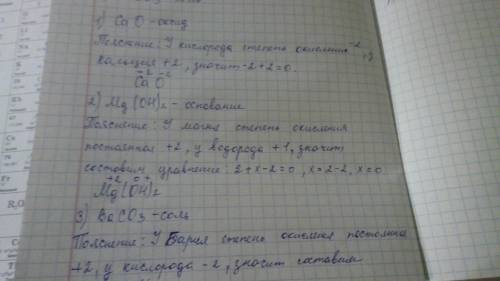 1) CaO - оксид
Пояснение: У кислорода степень окисления -2, у
кальция +2, значит -2+2=0.
+2 -2
Ca O
2) Mg(OH)₂ - основание
Пояснение: У магния степень окисления
постоянная +2, у водорода +1, значит
составим уравнение: 2+x-2=0, x=2-2, x=0
+2 0 +
Mg(OH)₂
3) BaCO₃ - соль
Пояснение: У Бария степень окисления постоянна
+2, у кислорода -2, значит составим